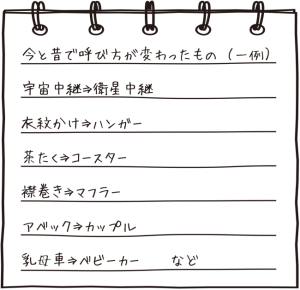 今と昔で呼び方が変わったもの（一例）
宇宙中継⇒衛星中継
衣紋かけ⇒ハンガー
茶たく⇒コースター
襟巻き⇒マフラー
アベック⇒カップル
乳母車⇒ベビーカー　　など